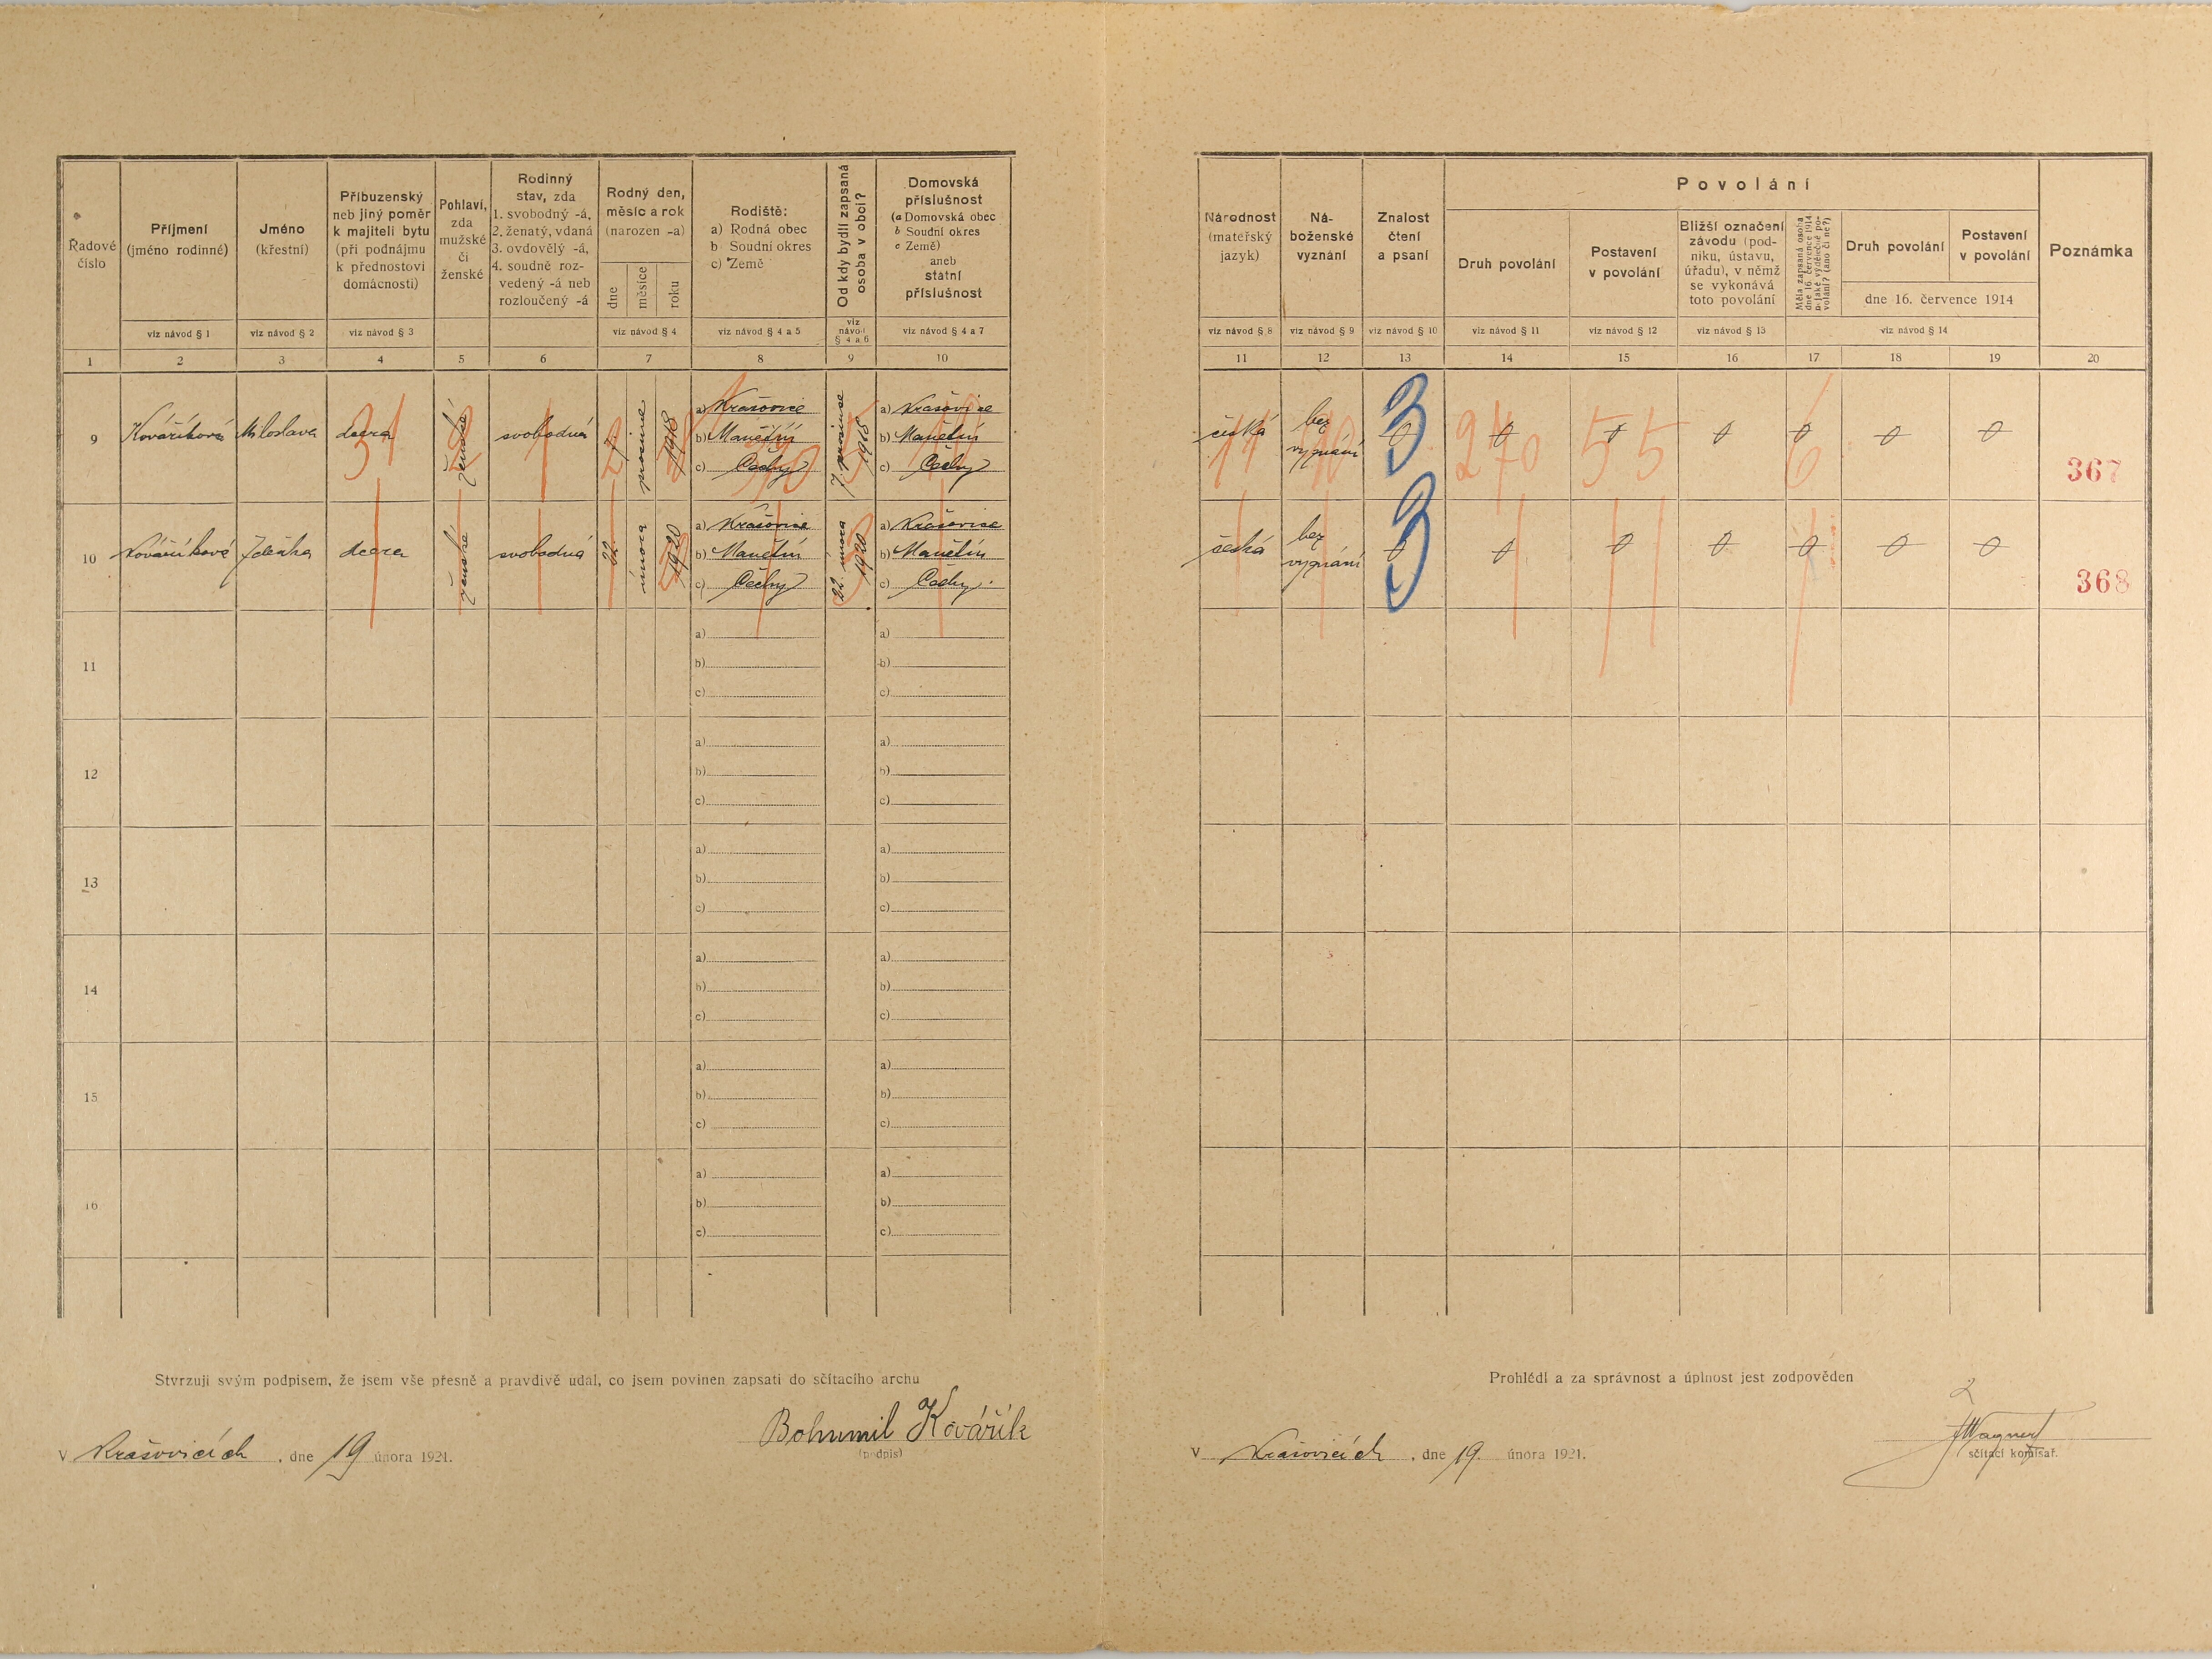 Řadové
číslo
Příjmení
(jméno rodinné)
viz návod § 1
Jméno
(křestní)
viz návod § 2
Příbuzenský
neb jiný poměr
k majiteli bytu
(při podnájmu
k přednostovi
domácnosti)
viz návod § 3
Pohlaví,
zda
mužské
či
ženské
Rodinný
stav, zda
1. svobodný -á,
2. ženatý, vdaná
3. ovdovělý -á,
4. soudně roz-
vedený -á neb
rozloučený -á
Rodný den,
měsíc a rok
(narozen -a)
dne
měsíce
roku
viz návod § 4
Rodiště:
a) Rodná obec
b Soudní okres
c) Země
viz návod § 4 a 5
Od kdy bydlí zapsaná
osoba v obci?
viz
návod
§ 4 a 6
Domovská
příslušnost
(a Domovská obec
b Soudní okres
c Země)
aneb
státní
příslušnost
viz návod § 4 a 7
1 2 3 4 5 6 7 8 9 10
Národnost
(mateřský
jazyk)
viz návod § 8
Ná-
boženské
vyznání
viz návod § 9
Znalost
čtení
a psaní
viz návod § 10
Povolání
Druh povolání
viz návod § 11
Postavení
v povolání
viz návod § 12
Bližší označení
závodu (pod-
niku, ústavu,
úřadu), v němž
se vykonává
toto povolání
viz návod § 13
Měla zapsaná osoba
dne 16. července 1914
nějaké výdělečné po-
volání? (ano či ne?)
Druh povolání
Postavení
v povolání
dne 16. července 1914
viz návod § 14
Poznámka
11 12 13 14 15 16 17 18 19 20
9 Kováříková Miloslava dcera ženské svobodná 7. prosince 1918
a) Krašovice
b) Manětín
c) Čechy
7. prosince
1918
a) Krašovice
b) Manětín
c) Čechy
31 2 1 2
česká
bez
vyznání
0 0 0 0 0 0 0
11 10 3 270 55 6
367
10 Kováříková Zdeňka dcera ženské svobodná 22. února 1920
a) Krašovice
b) Manětín
c) Čechy
22. února
1920
a) Krašovice
b) Manětín
c) Čechy
česká
bez
vyznání
0 0 0 0 0 0 0
3
368
11
a) a)
b) b)
c) c)
12
a) a)
b) b)
c) c)
13
a) a)
b) b)
c) c)
14
a) a)
b) b)
c) c)
15
a) a)
b) b)
c) c)
16
a) a)
b) b)
c) c)
Stvrzuji svým podpisem, že jsem vše přesně a pravdivě udal, co jsem povinen zapsati do sčítacího archu
V Krašovicích, dne 19 února 1921.
Bohumil Kovářík
(podpis)
Prohlédl a za správnost a úplnost jest zodpověden
V Krašovicích, dne 19. února 1921.
JWagner
sčítací komisař.